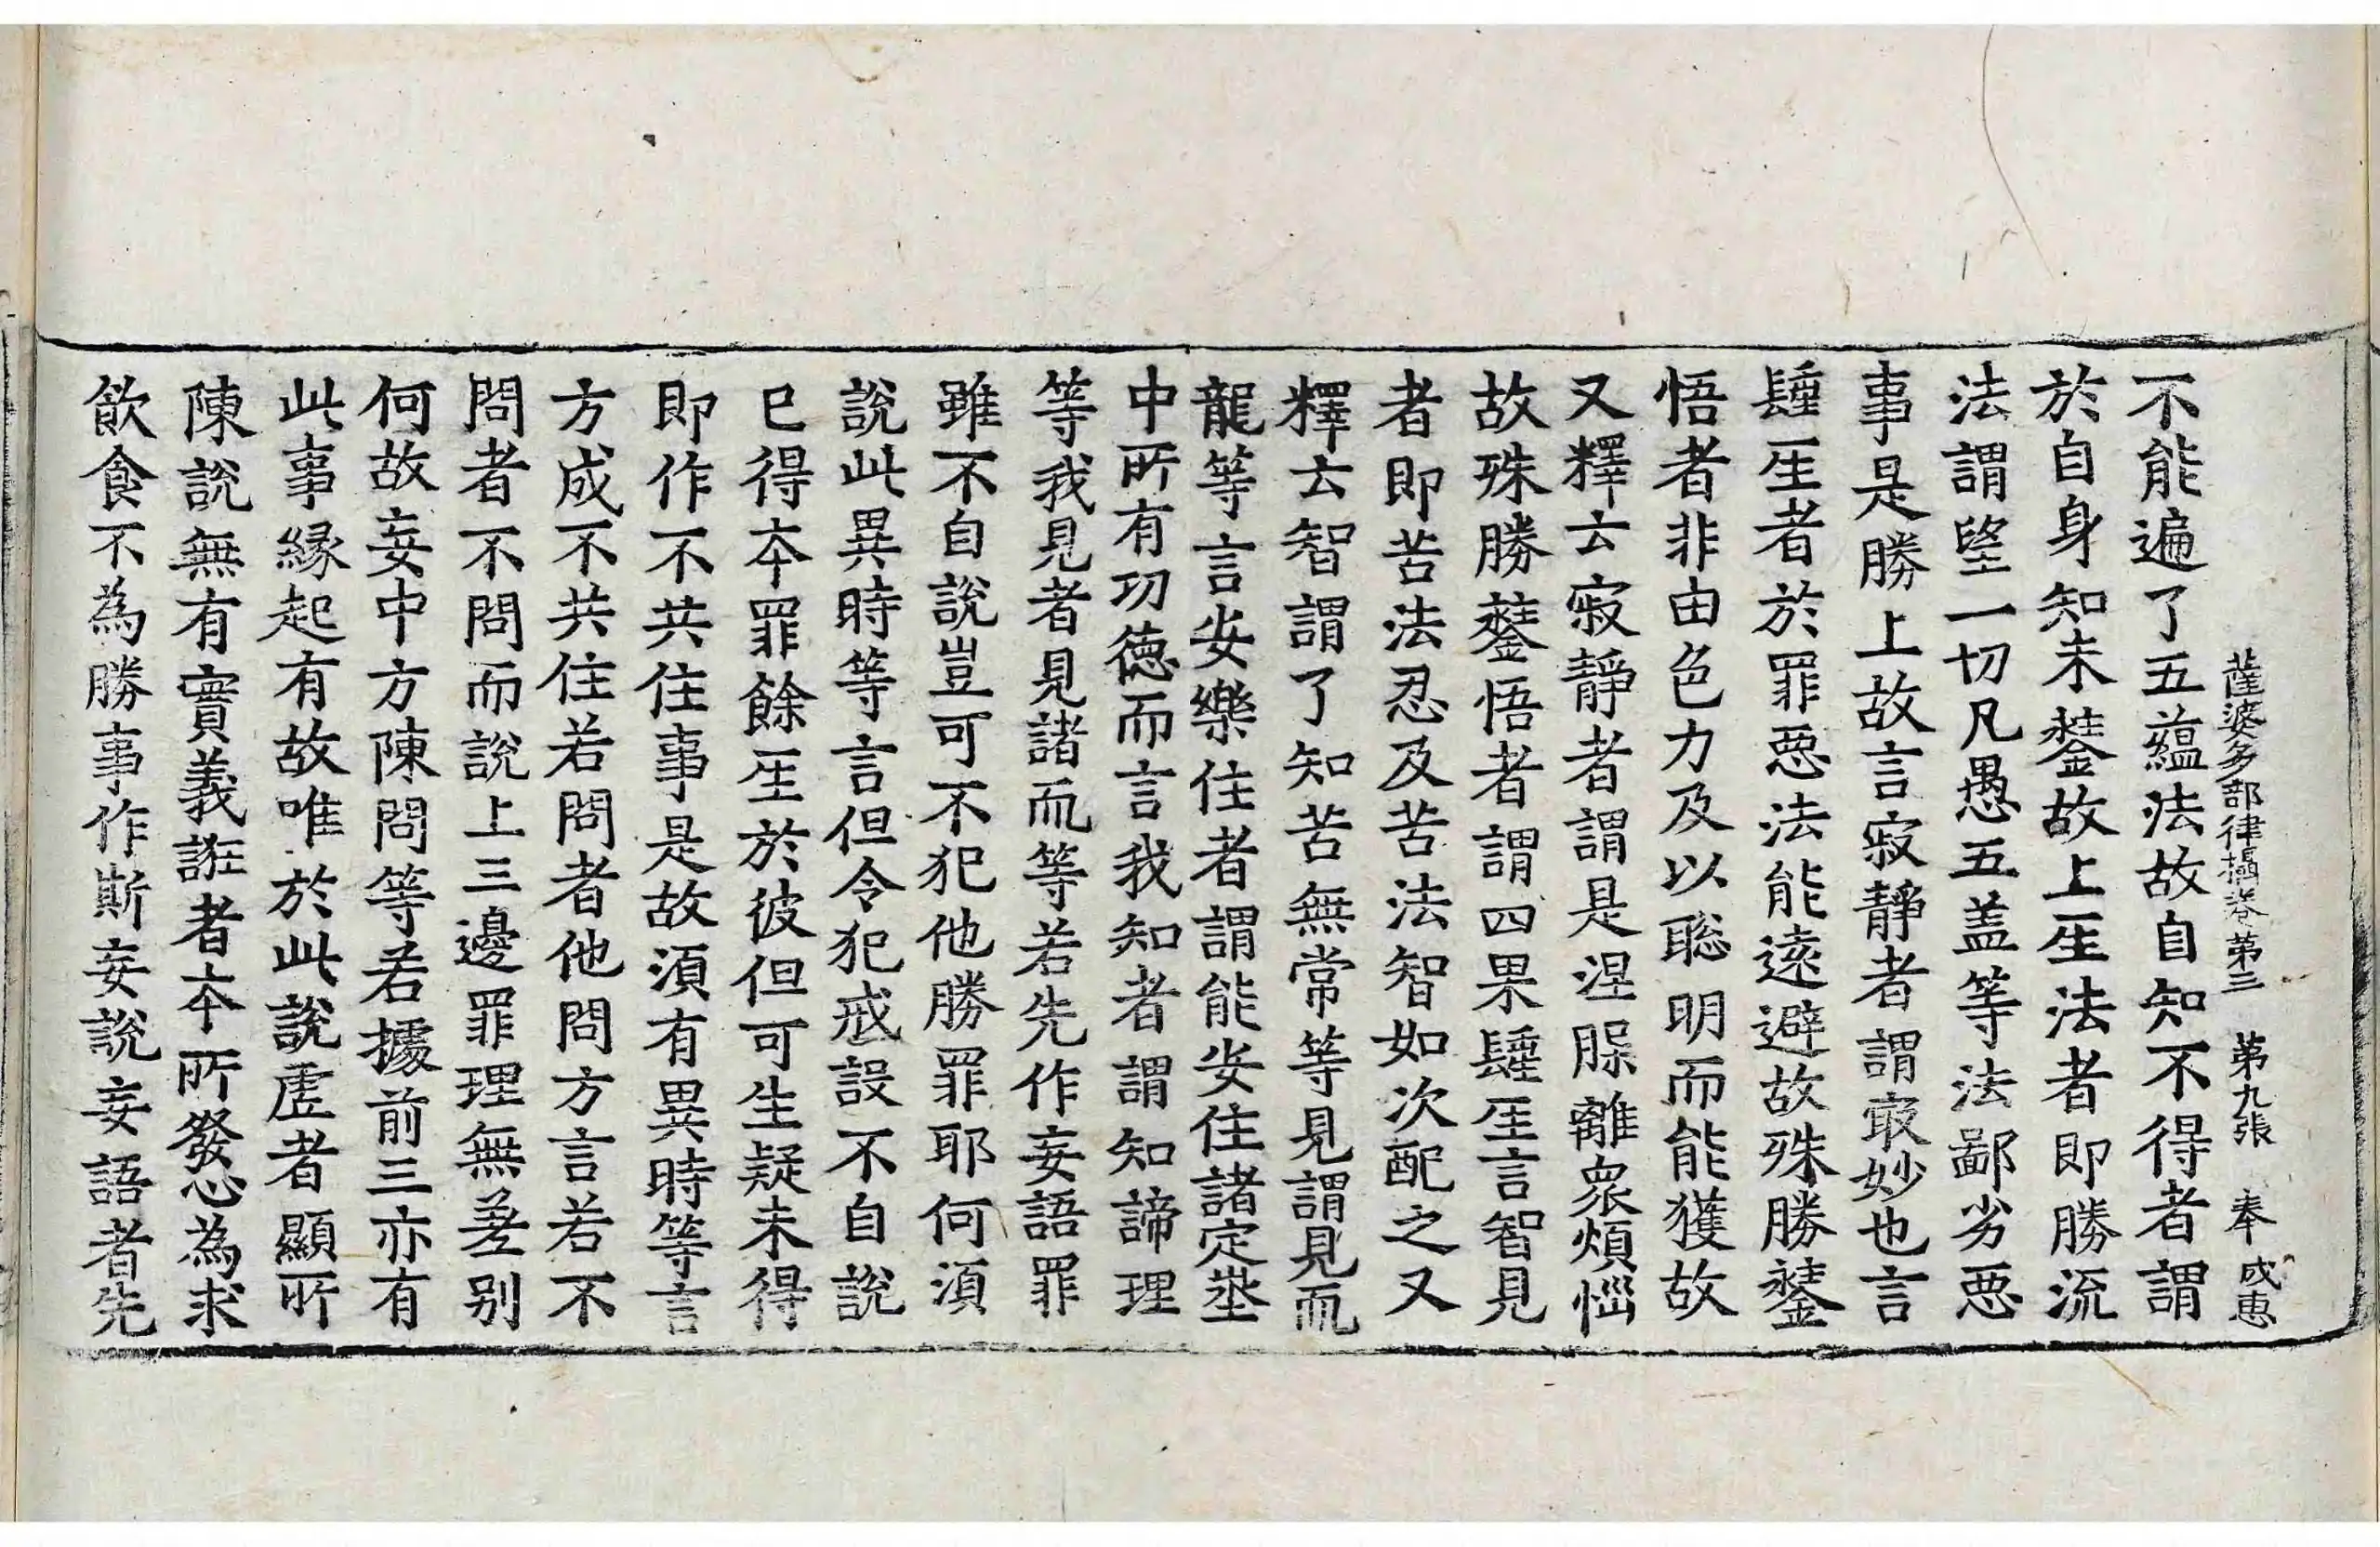 薩婆多部律攝卷第三 第九張 奉 成惠
不能遍了五蘊法故自知不得者謂
於自身知未𨭻故上𤯔法者即勝流
法謂望一切凡愚五盖等法鄙劣惡
事是勝上故言寂靜者謂㝡妙也言
𨲢𤯔者於罪惡法能遠避故殊勝𨭻
悟者非由色力及以聡明而能獲故
又釋云寂靜者謂是涅槃離衆煩惱
故殊勝𨭻悟者謂四果𨲢𤯔言智見
者即苦法忍及苦法智如次配之又
釋云智謂了知苦無常等見謂見𠀑
龍等言安樂住者謂能安住諸定埊
中所有功德而言我知者謂知諦理
等我見者見諸𠀑等若先作妄語罪
雖不自說豈可不犯他勝罪耶何須
說此異時等言但令犯戒設不自說
已得本罪餘𤯔於彼但可生疑未得
即作不共住事是故須有異時等言
方成不共住若問者他問方言若不
問者不問而說上三邊罪理無差別
何故妄中方陳問等若據前三亦有
此事緣起有故唯於此說虛者顯所
陳說無有實義誑者本所發心為求
飲食不為勝事作斯妄說妄語者先